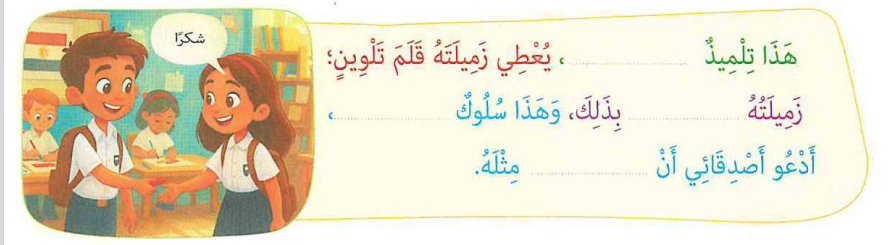 شكرًا
هَذَا تِلْمِيذٌ ............ ، يُعْطِي زَمِيلَتَهُ قَلَمَ تَلْوِينٍ؛
زَمِيلَتُهُ ............ بِذَلِكَ، وَهَذَا سُلُوكٌ ............،
أَدْعُو أَصْدِقَائِي أَنْ ............ مِثْلَهُ.